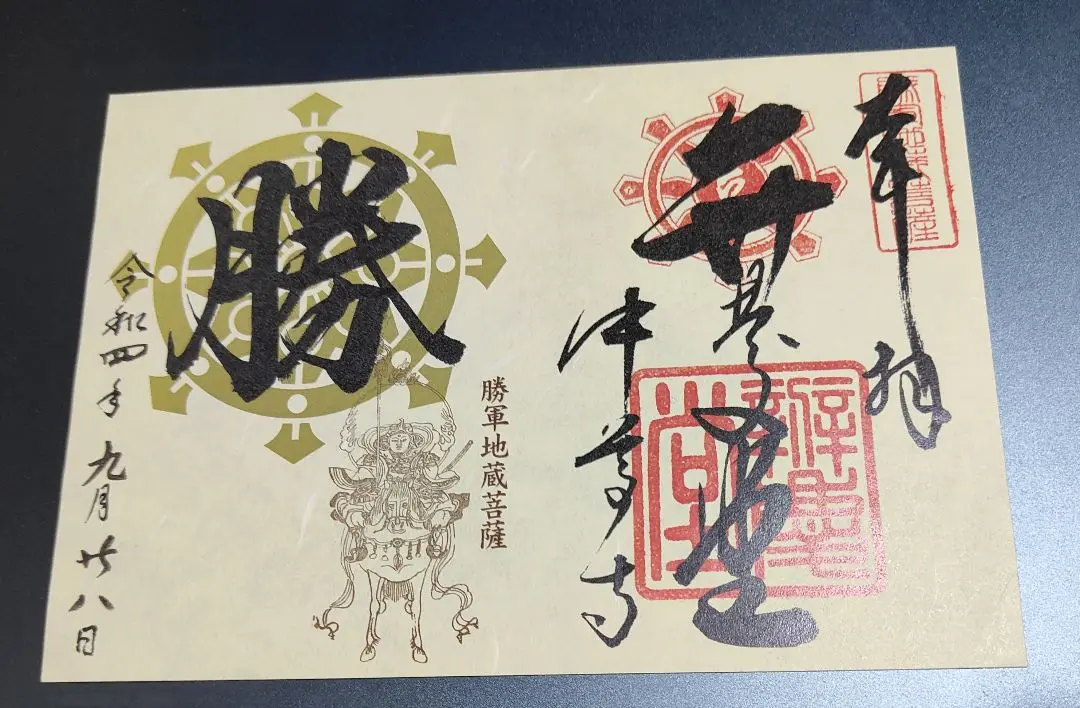 奉拝
弁慶堂
中尊寺
勝軍地蔵菩薩
勝
令和四年九月廿八日